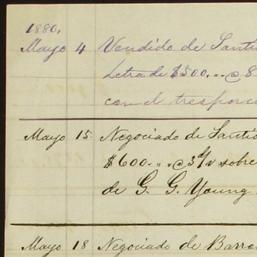 1880.
Mayo 4 Vendido de Santi
Letra de $500... @ 8
con el tres por ci
Mayo 15 Negociado de Santi
$600.. @ 3 d/v sobre
de G. G. Young
Mayo 18 Negociado de Barre